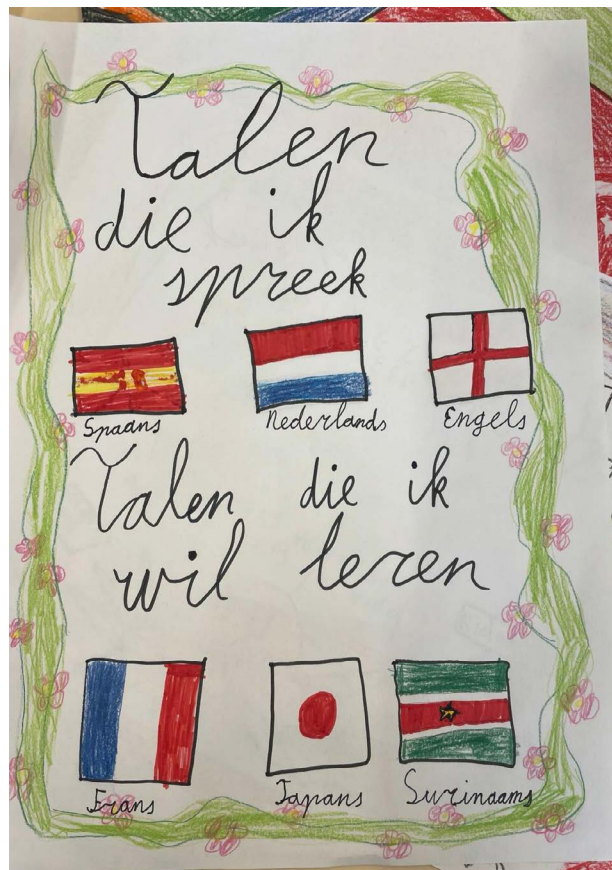 Talen
die ik
spreek
Spaans Nederlands Engels
Talen die ik
wil leren
Frans Japans Surinaams